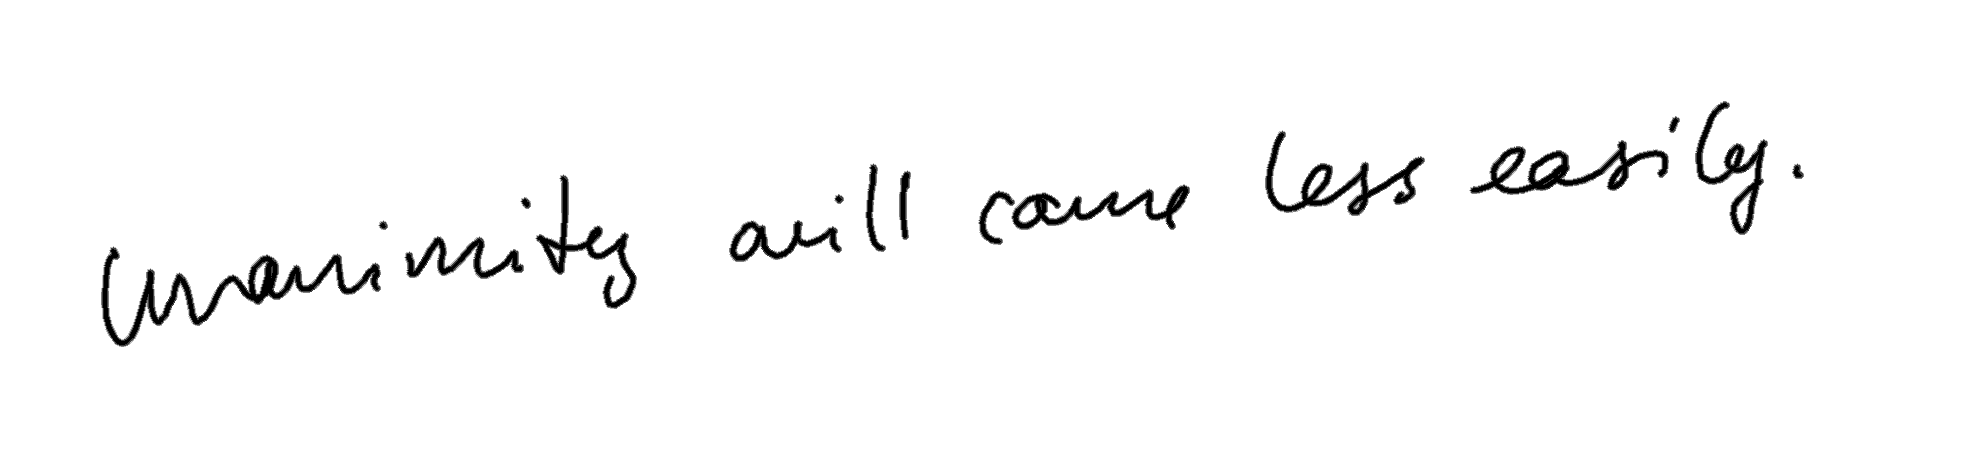 unanimity will come less easily.